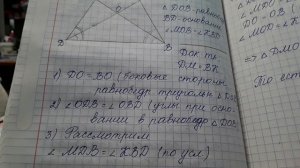 O
△ DOB равно
BD - основани
∠MDB = ∠KBD
D
B
Док ть
DM = BK
1) DO = BO (боковые стороны
равнобедр треугольн △ DOB
2) ∠ODB = ∠OBD (углы при осно-
вании в равнобедр △ DOB
3) Рассмотрим
∠MDB = ∠KBD (по усл)
DO = OB (
∠MOD =
=> △ DMO
То есть